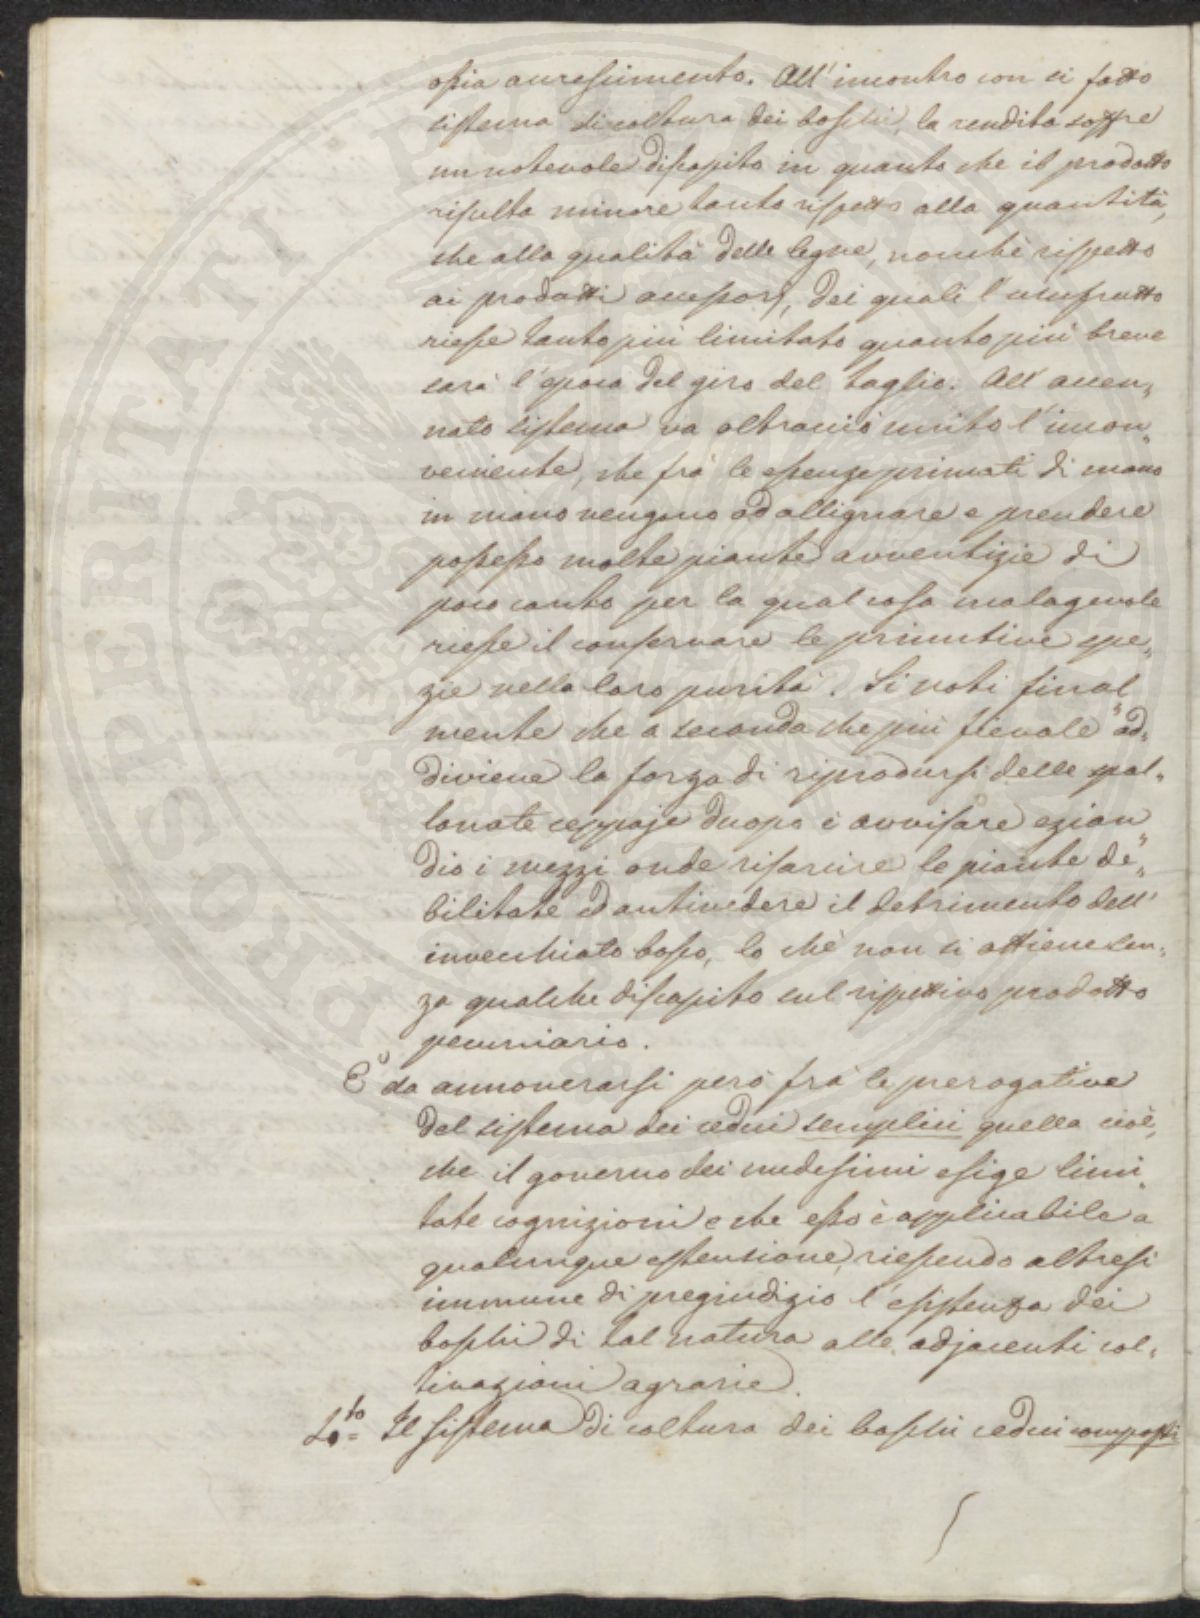 ossia accrescimento. All'incontro con sì fatto
sistema di coltura dei boschi, la rendita soffre
un notevole discapito in quanto che il prodotto
risulta minore tanto rispetto alla quantità,
che alla qualità delle legne, nonchè rispetto
ai prodotti accessorj, dei quali l'usufrutto
riesce tanto più limitato quanto più breve
sarà l'epoca del giro del taglio. All'accen„
nato sistema va oltracciò unito l'incon„
veniente, che frà le essenze primati di mano
in mano vengono ad allignare e prendere
possesso molte piante avventizie di
poco conto per la qual cosa malagevole
riesce il conservare le primitive spe„
zie nella loro purità. Si noti final„
mente che a seconda che più fievole ad„
diviene la forza di riprodursi delle
ceppaje duopo è avvisare ezian„
dio i mezzi onde risarcire le piante de„
bilitate ed antivedere il detrimento dell'
invecchiato bosco, lo chè non si ottiene sen„
za qualche discapito sul rispettivo prodotto
pecuniario.
E' da annoverarsi però frà le prerogative
del sistema dei cedui semplici quella cioè,
che il governo dei medesimi esige limi„
tate cognizioni e che esso è applicabile a
qualunque estensione, riescendo altresì
immune di pregiudizio l'esistenza dei
boschi di tal natura alle adjacenti col„
tivazioni agrarie.
Il sistema di coltura dei boschi cedui composti
PROSPERITATI PUBLICAE